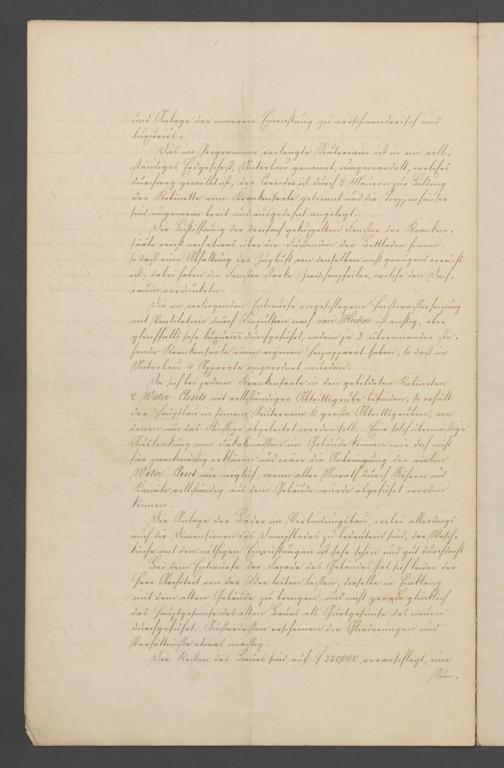 und Anlage der inneren Einrichtung zu verschwenderisch und
luxuriös.
Das im Programme verlangte Souterrain ist in ein voll-
ständiges Erdgeschoß, Unterbau genannt, umgewandelt, welches
durchweg gewölbt ist, der Corridor ist durch 2 Mauern zur Bildung
der Kabinette vom Krankensaale getrennt und die Treppenhäuser
sind ungemein breit und ausgedehnt angelegt.
Die der Fenster der Kranken-
säle reicht noch etwas über die der Bettladen hinaus,
so daß eine Abhaltung der Zugluft von denselben nicht genügend erreicht
ist; dabei haben die Fenster starke Zwischenpfeiler, welche den
raum verdunkeln.
Die im vorliegenden Entwurfe vorgeschlagene Heißwasserheizung
mit Ventilation durch Pulsion nach van Hecke ist richtig, aber
gleichfalls sehr luxuriös durchgeführt, indem je 3 übereinander ste-
hende Krankensäle einen eigenen Heizapparat haben, so daß im
Unterbau 4 Apparate angeordnet wurden.
Da sich bei jedem Krankensaale in den gebildeten Kabineten
2 Water-Closets mit vollständigen Abtrittsgruben befinden, so erhält
der Hauptbau in seinem Souterrain 6 große Abtrittsgruben, von
denen nur das Flüssige abgeleitet werden soll. Eine solch übermäßige
von Fäkalmassen im Gebäude können wir doch nicht
für zweckmäßig erklären und wäre die Anbringung der vielen
Water-Closet nur möglich, wenn aller Unrath durch Röhren und
Kanäle vollständig aus dem Gebäude würde abgeführt werden
können.
Die Anlage der Bäder im Verbindungsbau, wobei allerdings
auch die Dimensionen des Dampfbades zu bedeutend sind, der Wasch-
küche mit den nöthigen Einrichtungen ist sehr schön und gut durchdacht.
Bei dem Entwurfe der Façade des Gebäudes hat sich leider der
Herr Architect von der Idee leiten lassen, dieselbe in Einklang
mit dem alten Gebäude zu bringen, und nicht gerade glücklich
das Hauptgesimse des alten Baues als Gurtgesimse des neuen
durchgeführt. Ausserdessen erscheinen die Gliederungen und
Verhältnisse etwas massig.
Die Kosten des Baues sind auf f 280,000 veranschlagt, eine
Sum-